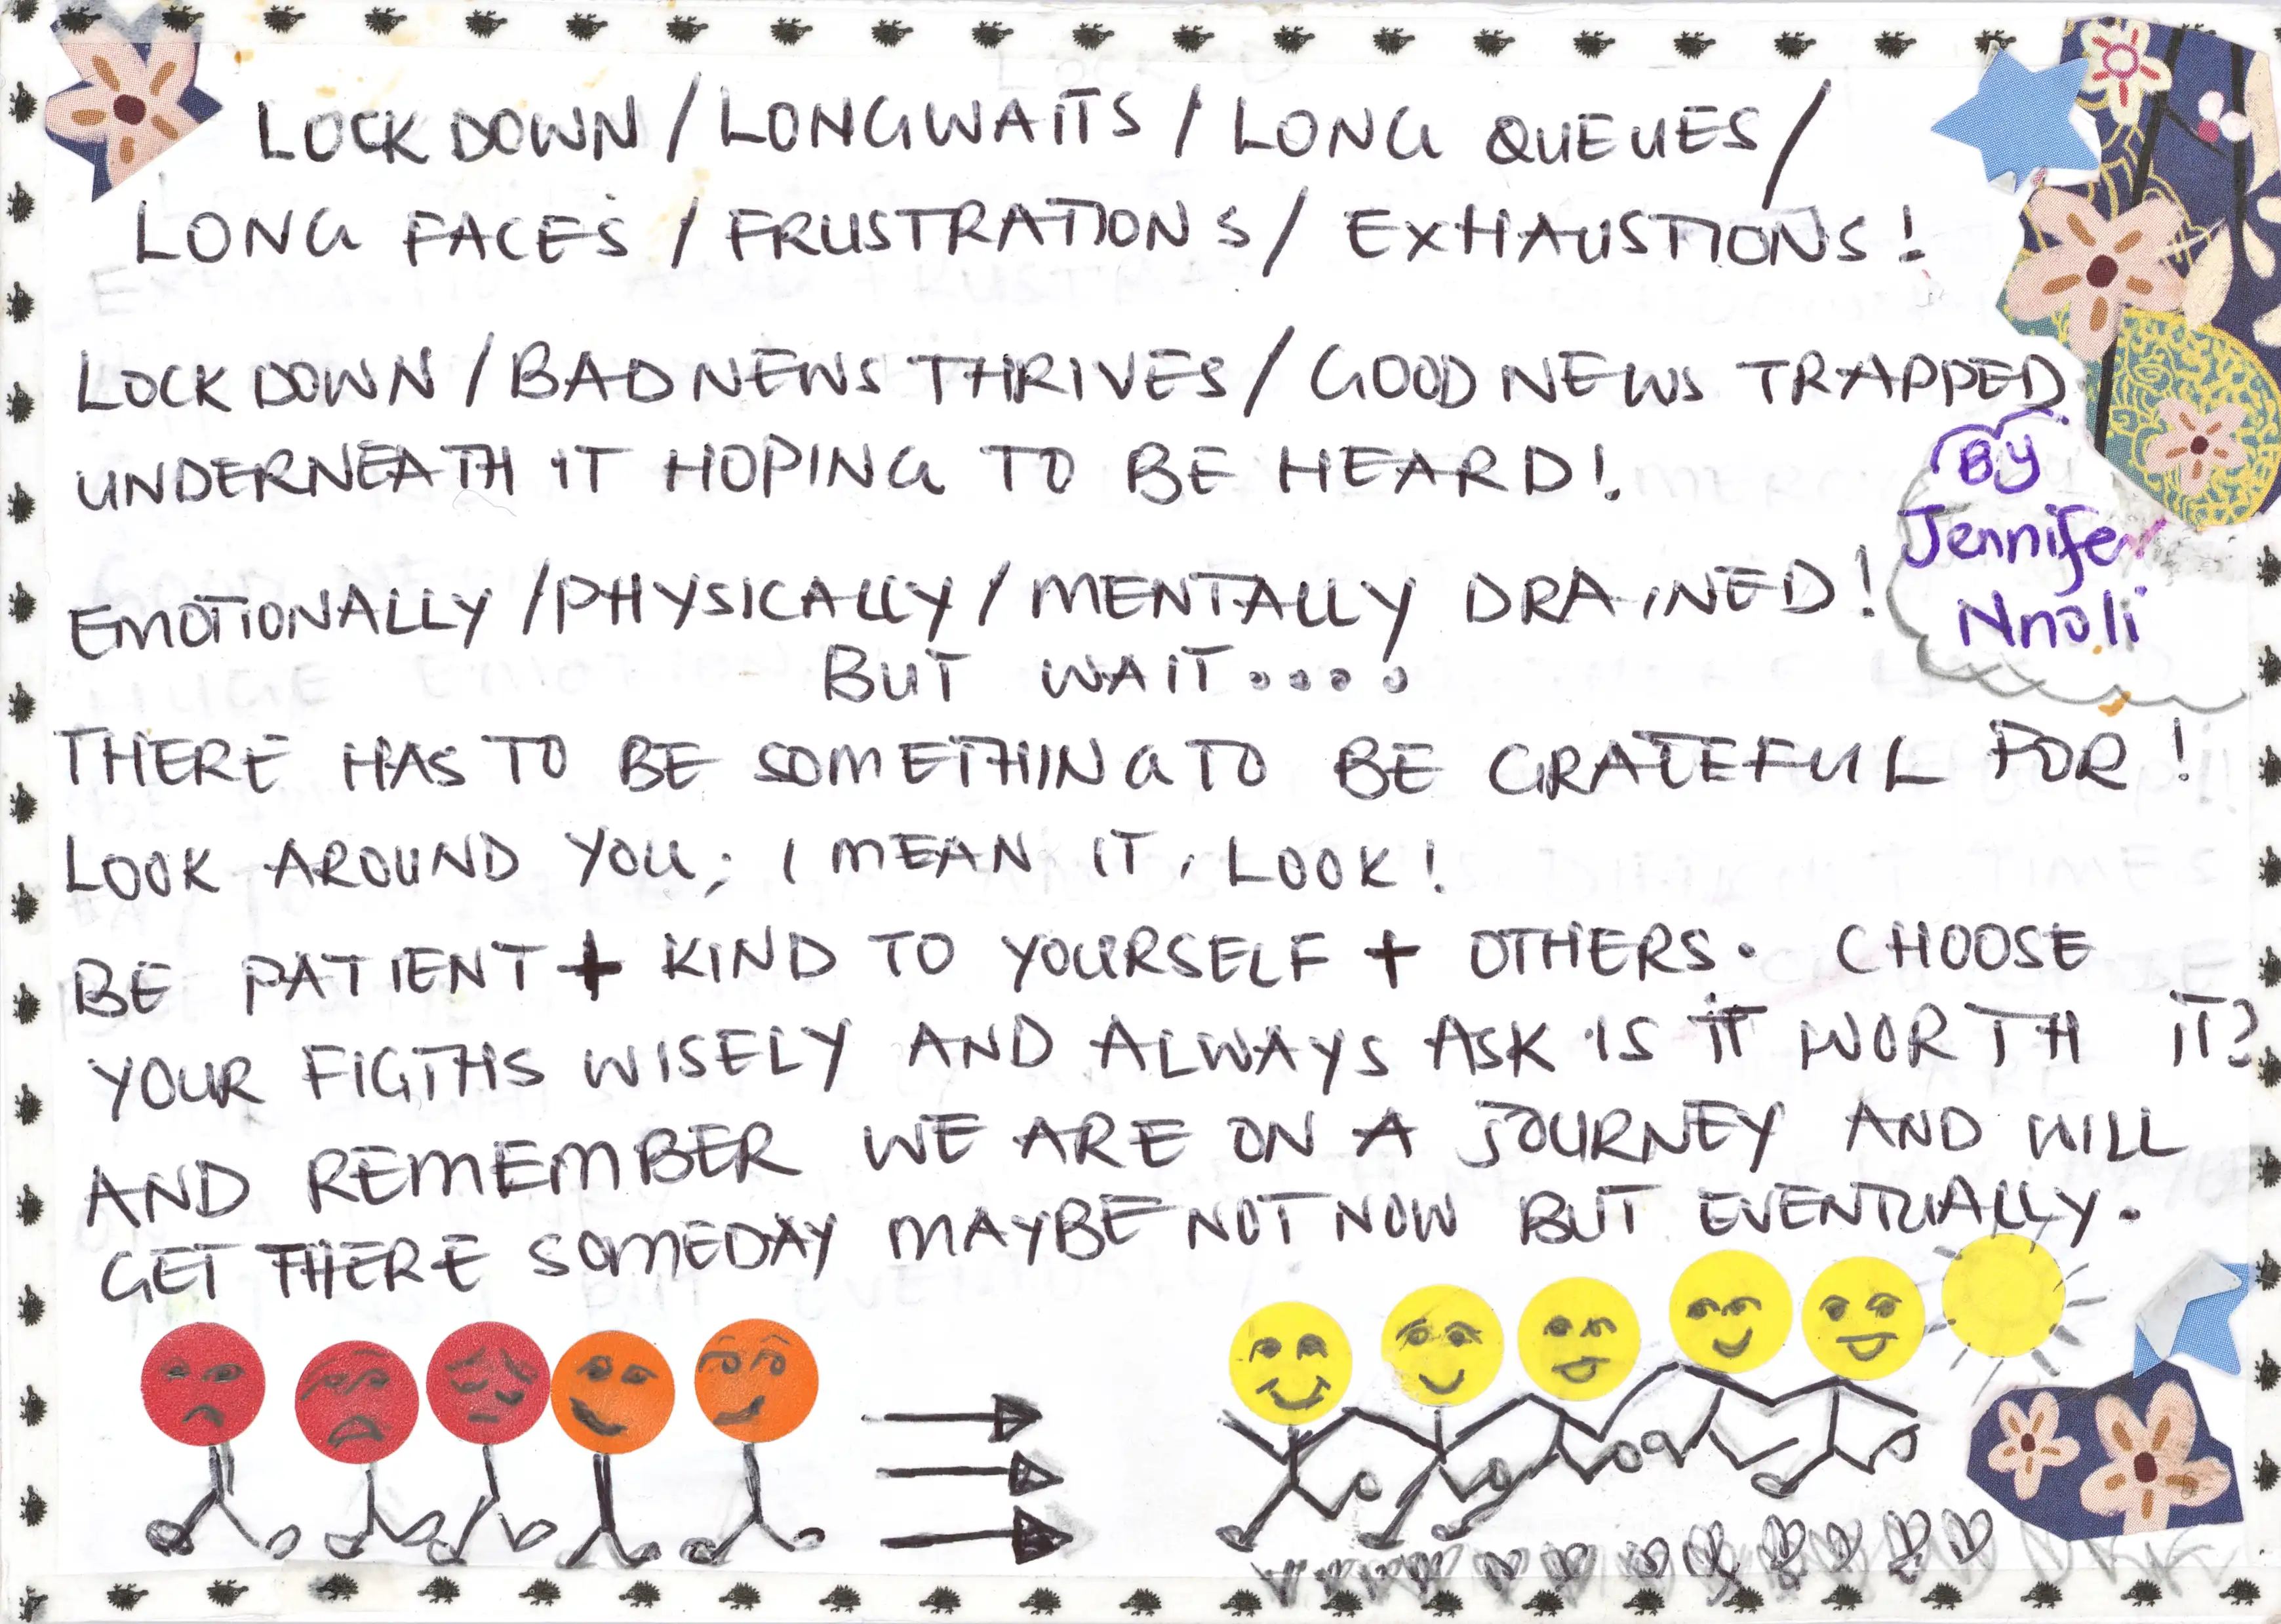 LOCK DOWN / LONGWAITS / LONG QUEUES /
LONG FACES / FRUSTRATIONS / EXHAUSTIONS!
LOCK DOWN / BAD NEWS THRIVES / GOOD NEWS TRAPPED
UNDERNEATH IT HOPING TO BE HEARD!
By
Jennifer
Nnoli
EMOTIONALLY / PHYSICALLY / MENTALLY DRAINED!
BUT WAIT....
THERE HAS TO BE SOMETHING TO BE GRATEFUL FOR!
LOOK AROUND YOU; I MEAN IT, LOOK!
BE PATIENT + KIND TO YOURSELF + OTHERS. CHOOSE
YOUR FIGTHS WISELY AND ALWAYS ASK IS IT WORTH IT?
AND REMEMBER WE ARE ON A JOURNEY AND WILL
GET THERE SOMEDAY MAYBE NOT NOW BUT EVENTUALLY.